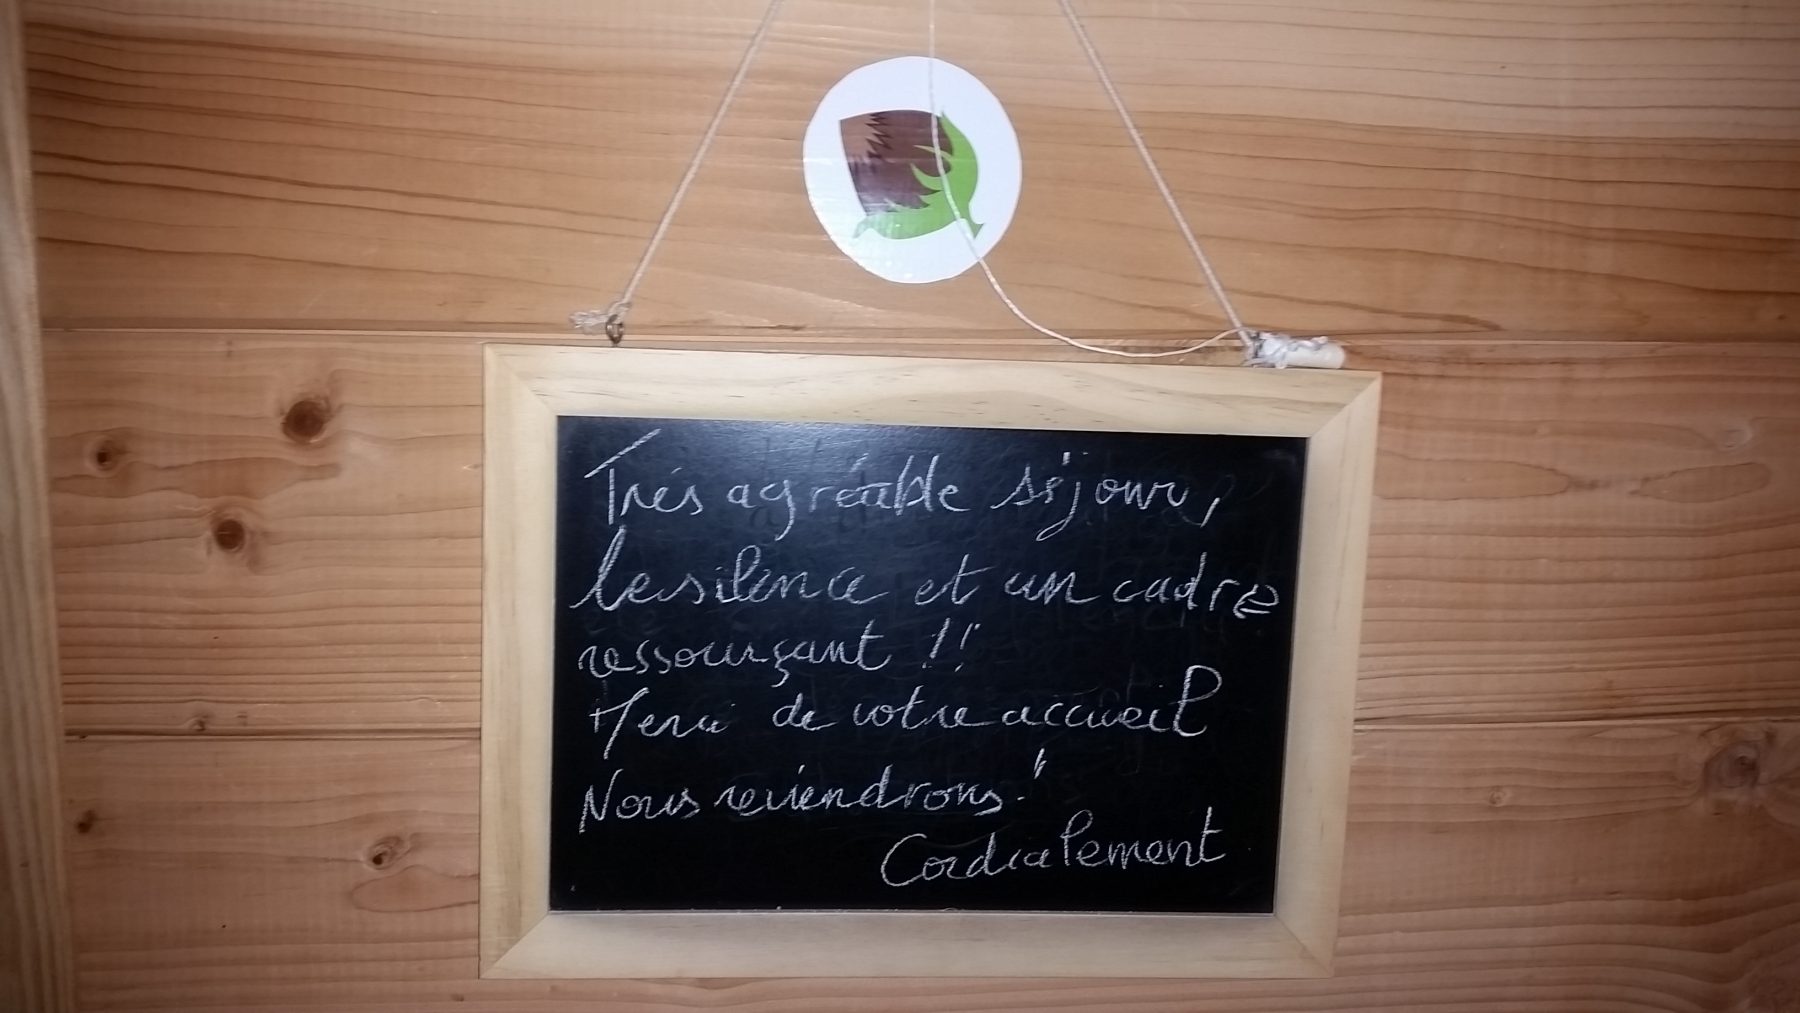 Trés agréable séjour,
le silence et un cadre
ressourçant !!
Merci de votre accueil
Nous reviendrons !
Cordialement